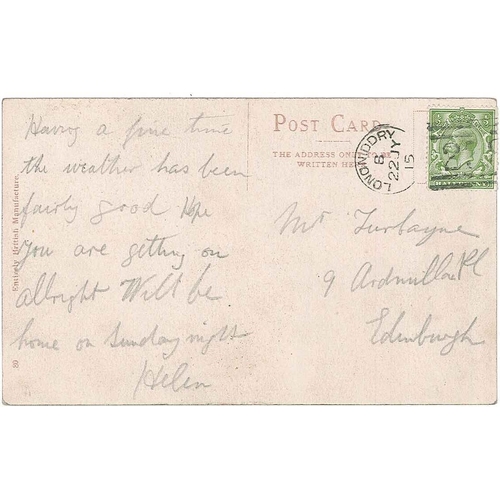 Having a fine time
the weather has been
fairly good Hope
you are getting on
allright Will be
home on Sunday night
Helen
Entirely British Manufacture.
80
POST CARD
THE ADDRESS ONLY
WRITTEN HE
LONGNIDDRY
8
22 JY
15
HALFPENNY
Mr Turbayne
9 Ardmillan Pl
Edinburgh